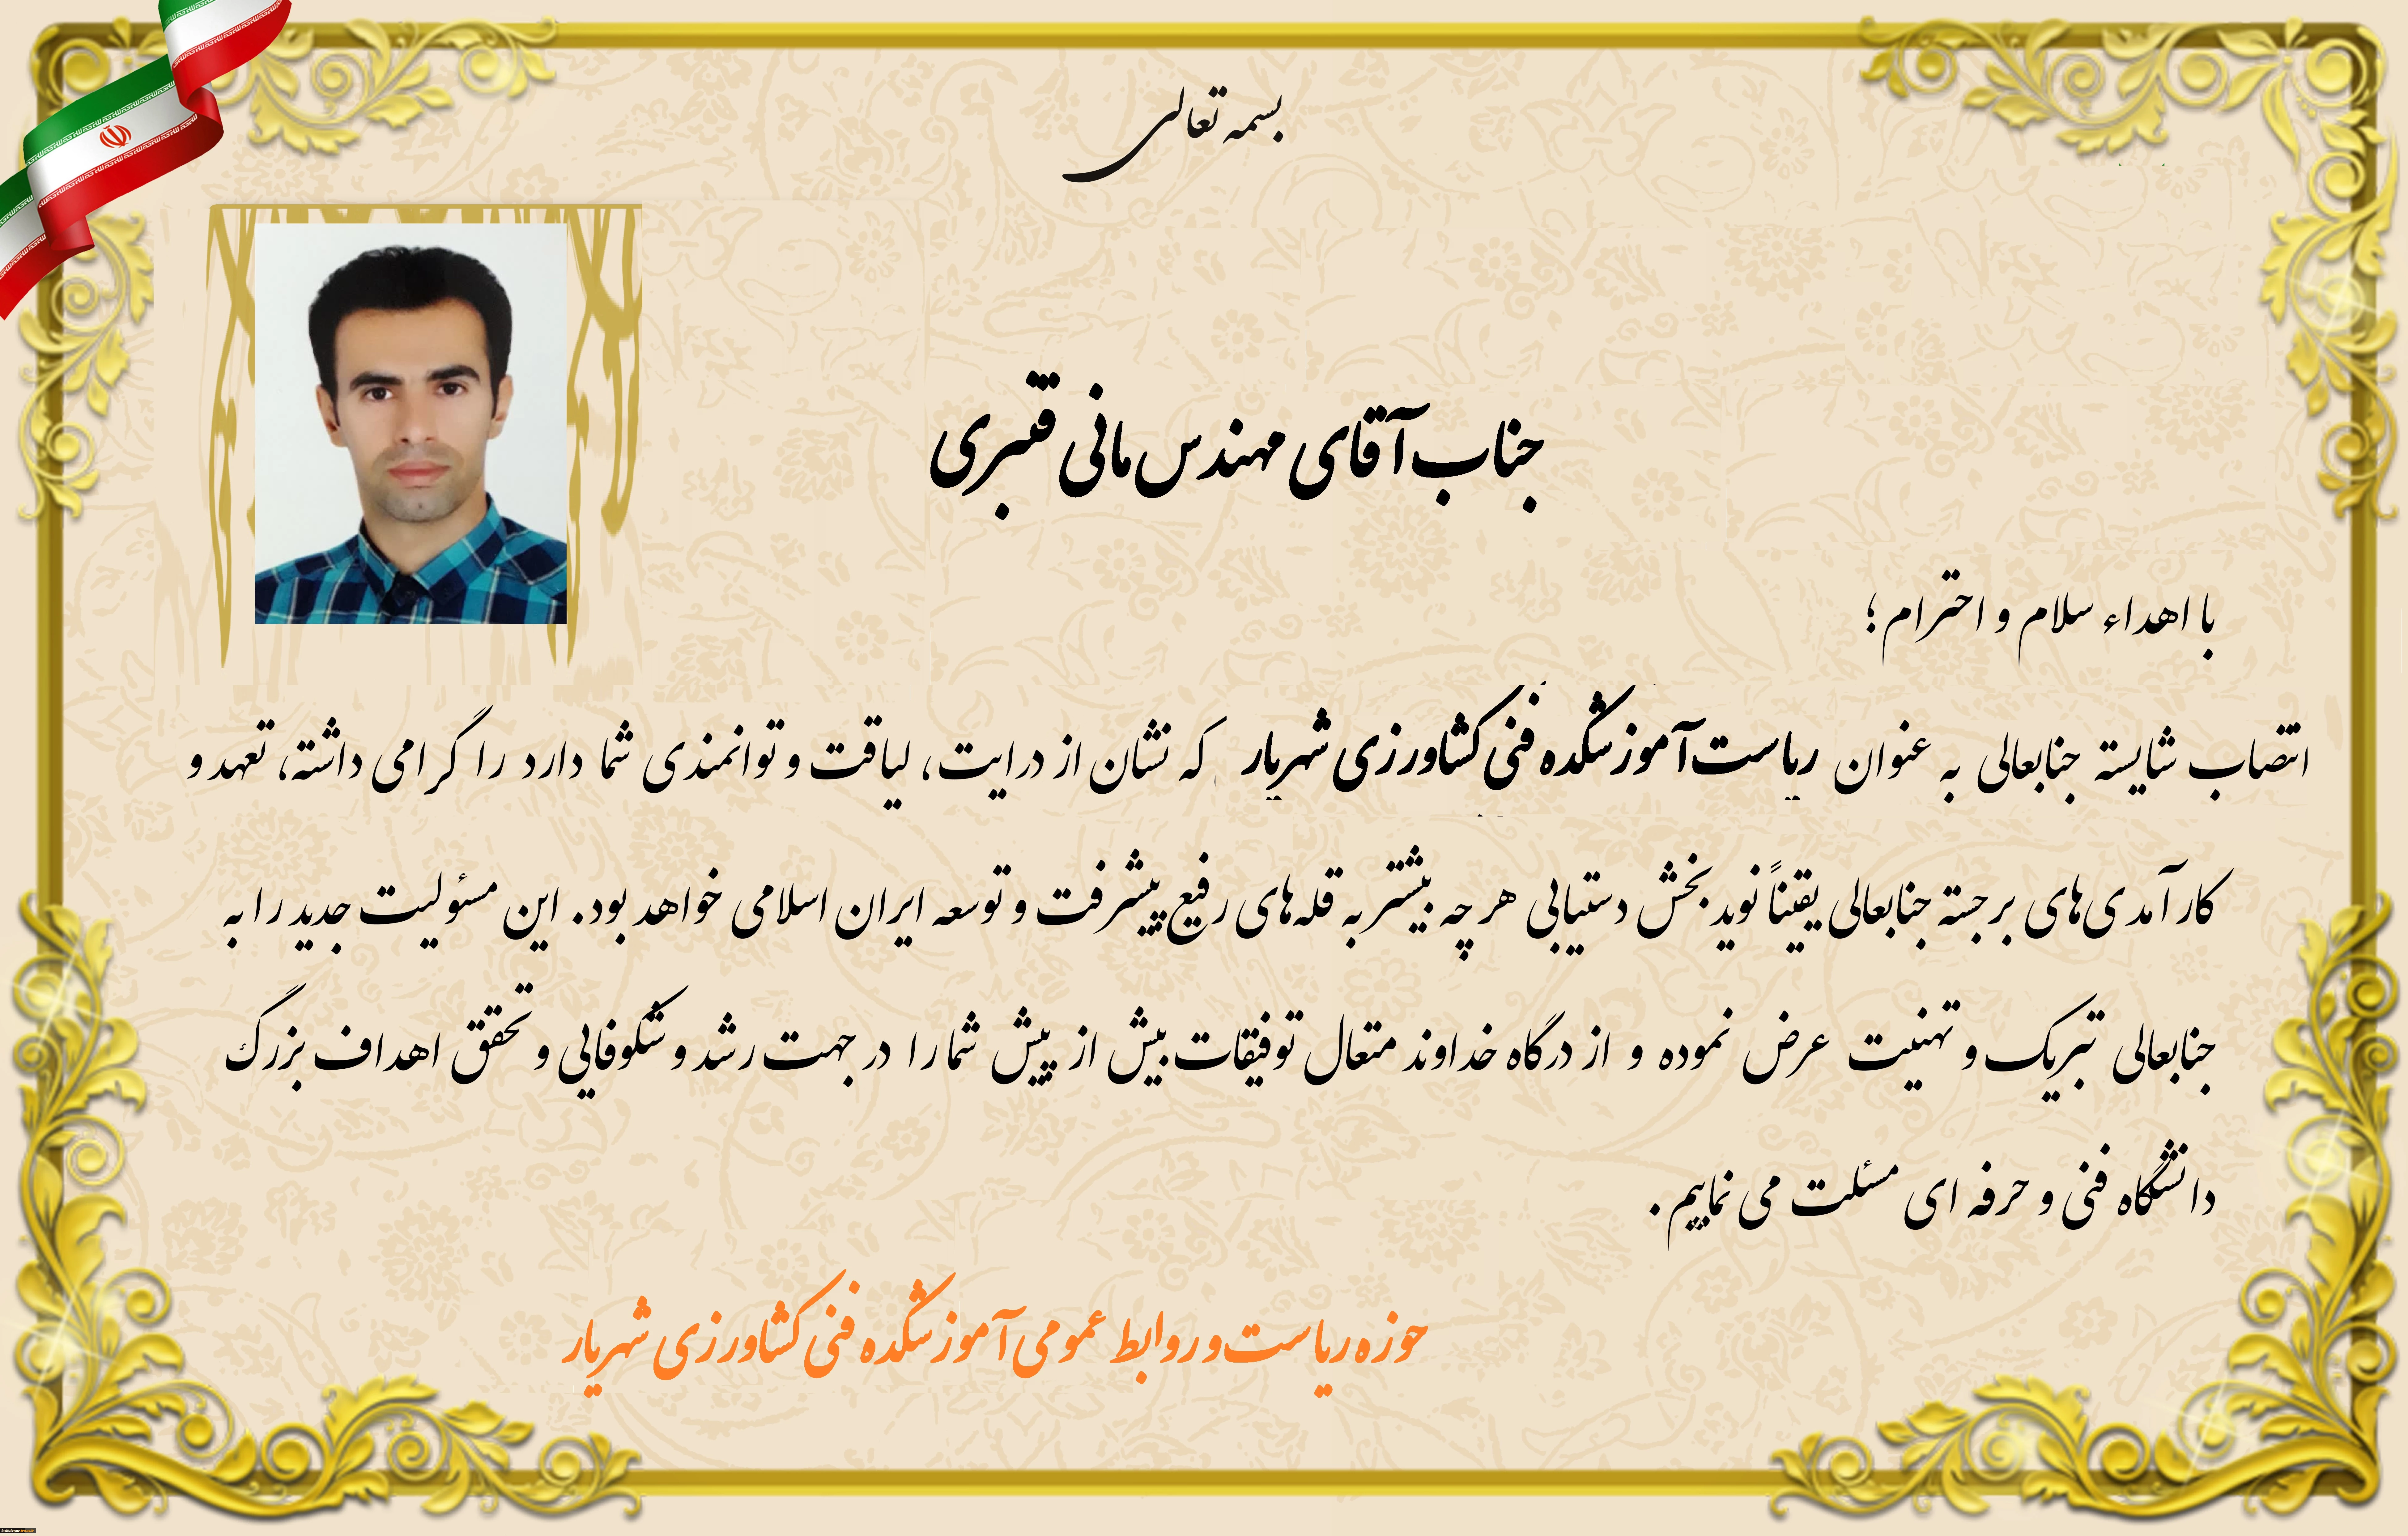 بسمه تعالی
جناب آقای مهندس مانی قنبری
با اهداء سلام و احترام ؛
انتصاب شایسته جنابعالی به عنوان ریاست آموزشکده فنی کشاورزی شهریار که نشان از درایت، لیاقت و توانمندی شما دارد را گرامی داشته، تعهد و
کارآمدی‌های برجسته جنابعالی یقیناً نوید بخش دستیابی هر چه بیشتر به قله‌های رفیع پیشرفت و توسعه ایران اسلامی خواهد بود. این مسئولیت جدید را به
جنابعالی تبریک و تهنیت عرض نموده و از درگاه خداوند متعال توفیقات بیش از پیش شما را در جهت رشد و شکوفایی و تحقق اهداف بزرگ
دانشگاه فنی و حرفه ای مسئلت می نماییم .
حوزه ریاست و روابط عمومی آموزشکده فنی کشاورزی شهریار